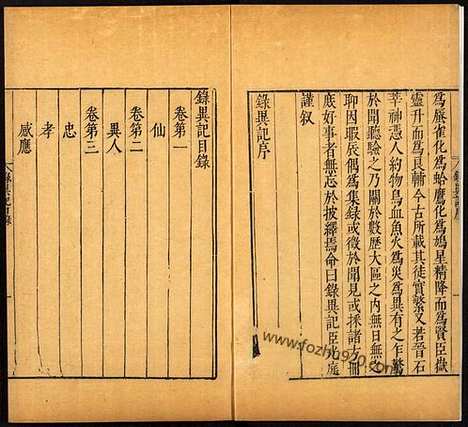 爲䧹雀化爲蛤鷹化爲鳩星精降而爲賢臣嶽
靈升而爲良輔今古所載其徒實繁又若晉石
莘神憑人約物鳥血魚火爲災爲異有之乍驚
於聞聽驗之乃關於數歷大區之内無日無之
聊因暇辰偶爲集錄或徵於聞見或採諸方冊
庶好事者無忘於披繹焉命曰錄異記臣光庭
謹叙
錄異記序
錄異記目錄
卷第一
仙
卷第二
異人
卷第三
忠
孝
感應
www.fozhu920.com